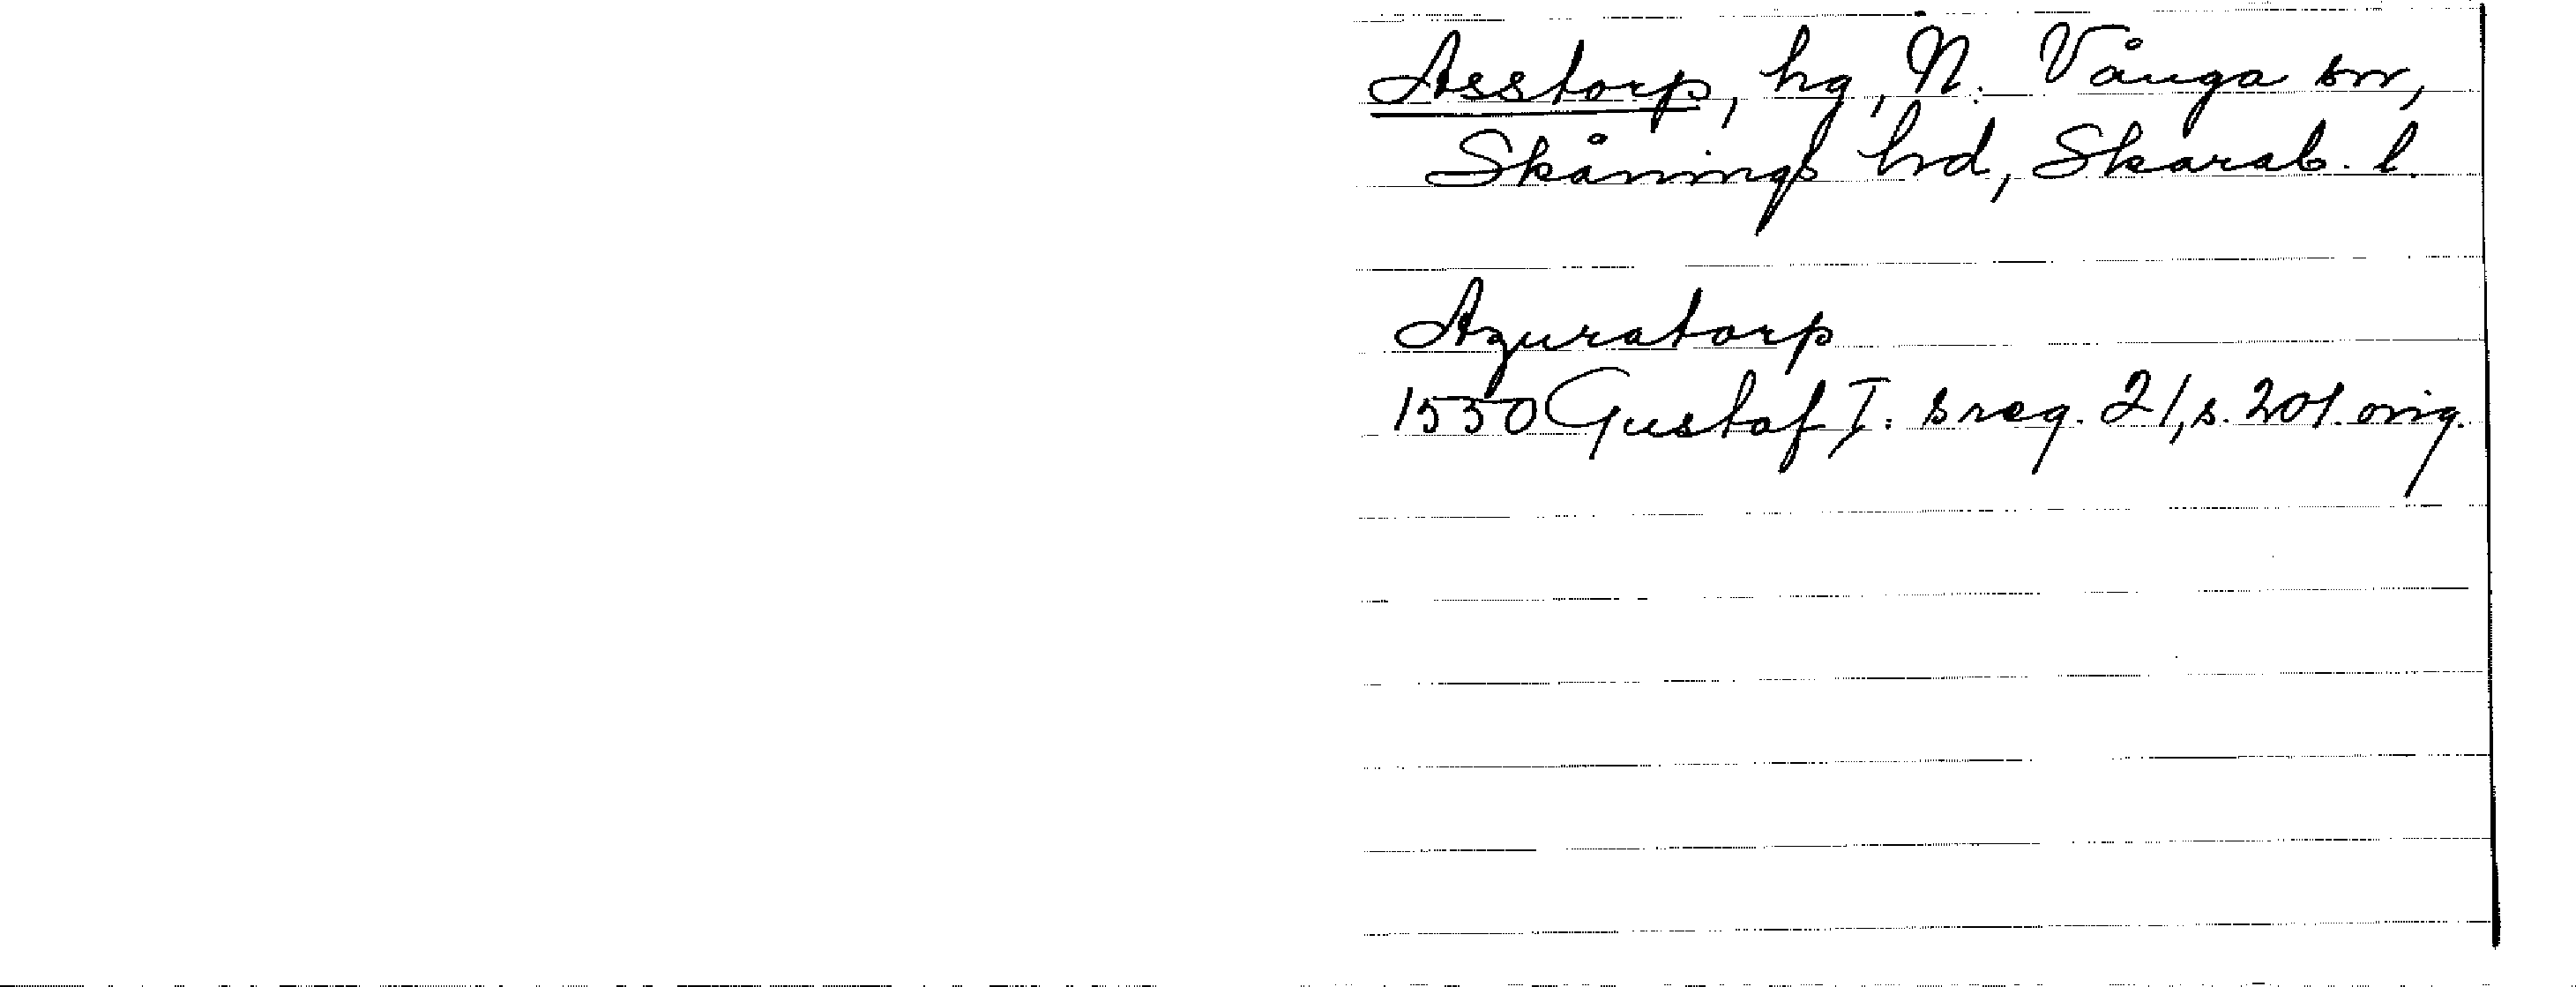 Asstorp, hg, N. Vånga sn,
Skånings hd, Skarab. l.
Azuratorp
1550 Gustaf I:s reg. 21, s. 201. orig.